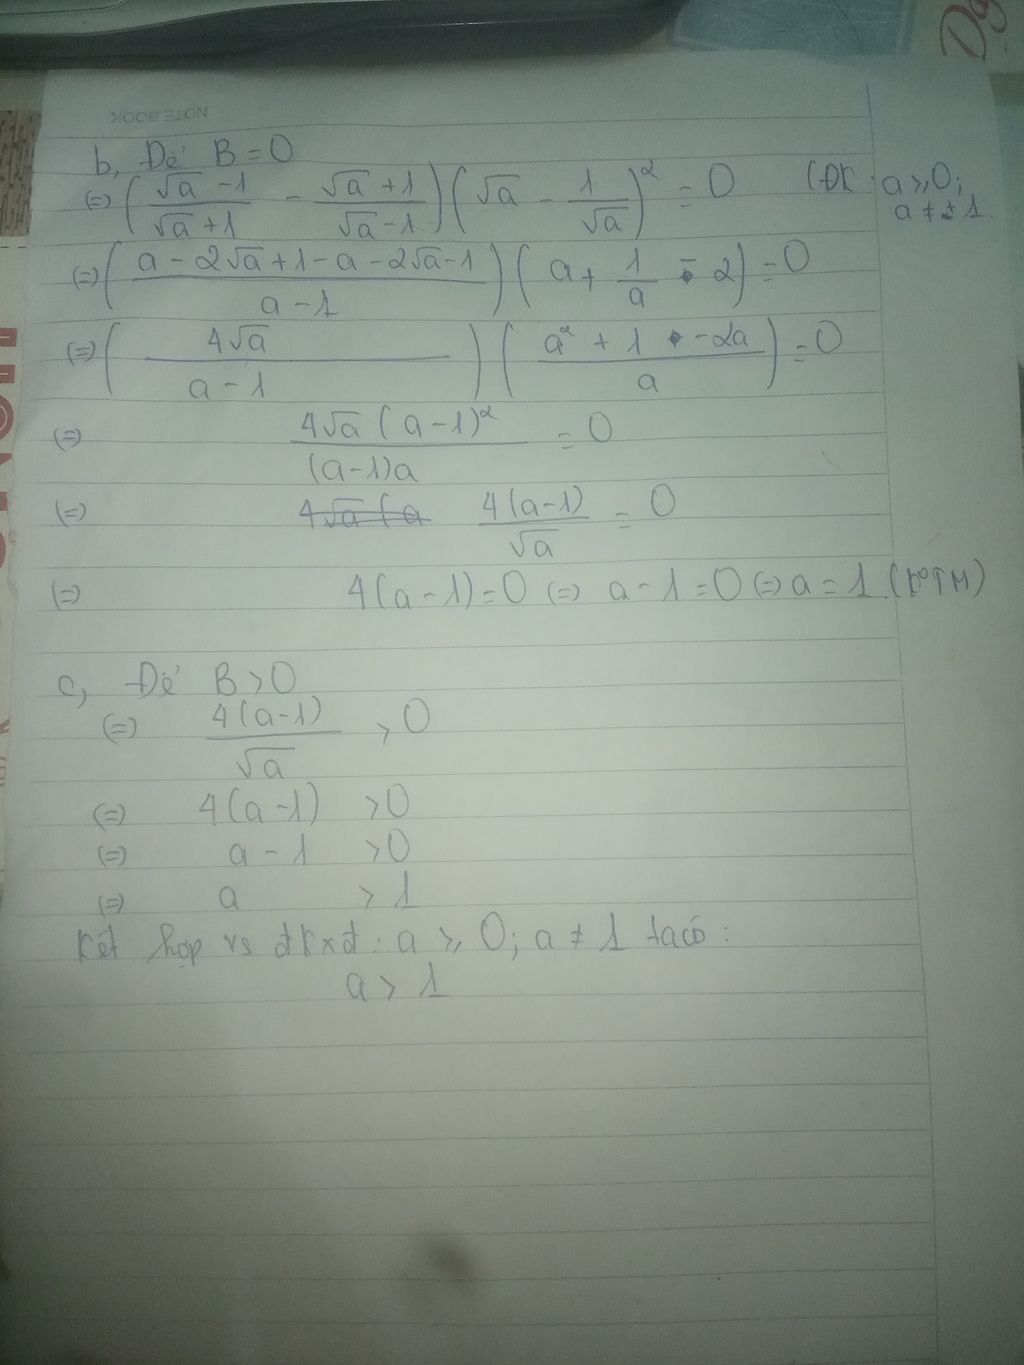 NOTE BOOK
b, Để B = 0
(=) (√a - 1 / √a + 1 - √a + 1 / √a - 1) (√a - 1/√a)² = 0 (ĐK: a ⩾ 0; a ≠ ± 1.
(=) (a - 2√a + 1 - a - 2√a - 1 / a - 1) (a + 1/a - 2) = 0
(=) (4√a / a - 1) (a² + 1 - 2a / a) = 0
(=) 4√a (a - 1)² / (a - 1)a = 0
(=) 4√a (a 4(a - 1) / √a = 0
(=) 4(a - 1) = 0 (=) a - 1 = 0 (=) a = 1 (K°TM)
c, Để B > 0
(=) 4(a - 1) / √a > 0
(=) 4(a - 1) > 0
(=) a - 1 > 0
(=) a > 1
Kết hợp vs đkxđ: a ⩾ 0; a ≠ 1 ta có:
a > 1